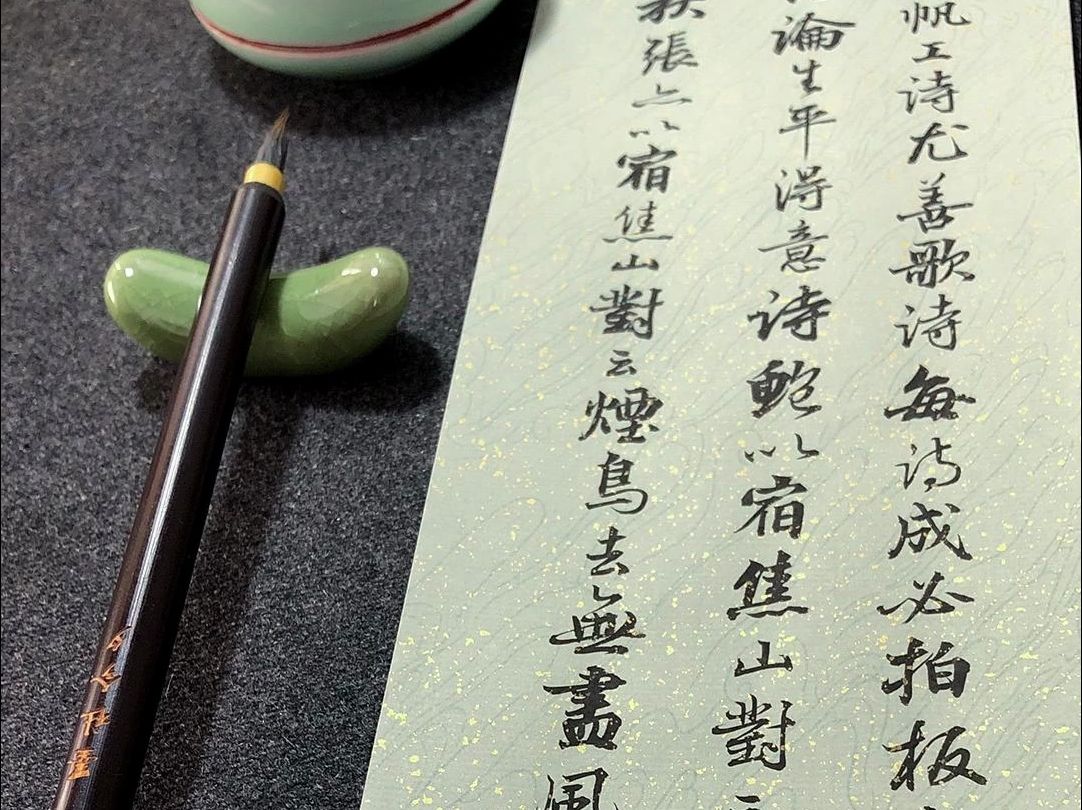 帆工诗尤善歌诗每诗成必拍板
論生平得意诗鮑以宿焦山對
張亦以宿焦山對云煙鳥去無盡風